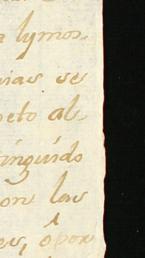 lymos-
uias se
peto al-
tinguido
on las
es, o por